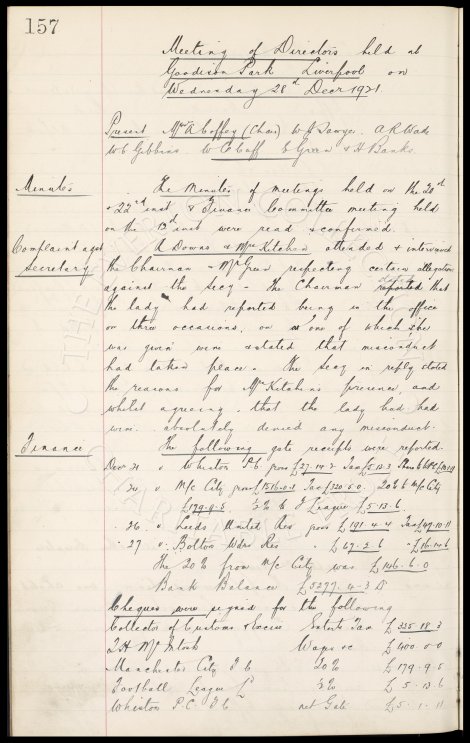 157
Meeting of Directors held at
Goodison Park Liverpool on
Wednesday 28th Decr 1921.
Present Mr A Coffey (Chair) W J Sawyer. A R Wade
W C Gibbins W C Cuff E Green & H Banks.
Minutes
The Minutes of meetings held on the 20th
& 22nd inst & Finance Committee meeting held
on the 13th inst were read & confirmed.
Complaint agst
Secretary
A Downs & Mrs Kitchen attended & interviewed
the Chairman & Mr Green respecting certain allegations
against the Secy - The Chairman reported that
the lady had reported being in the office
on three occasions, on one of which she
was given wine & stated that misconduct
had taken place. The Secy in reply stated
the reasons for Mrs Kitchens presence, and
whilst agreeing that the lady had had
wine absolutely denied any misconduct.
Finance
The following gate receipts were reported.
Decr 21 v Whiston P.C gross £27.14.2 Tax £5.13.3
24 v M/c City gross £1516.0.2 Tax £320.5.0 20% to M/c City
£179.9.5 % to F League £5.13.6.
26 v Leeds United Res gross £191.4.4 Tax £47.10.11
27 v Bolton Wdrs Res £67.2.6 £16.14.6
The 20% from M/c City was £146.6.0
Bank Balance £5277.4.3
Cheques were signed for the following
Collector of Customs & Excise Entertts Tax £335.18.3
T H McIntosh Wages &c £400.0.0
Manchester City F C 20% £179.9.5
Football League Ld % £5.13.6
Whiston P.C. F C net Gate £5.1.11